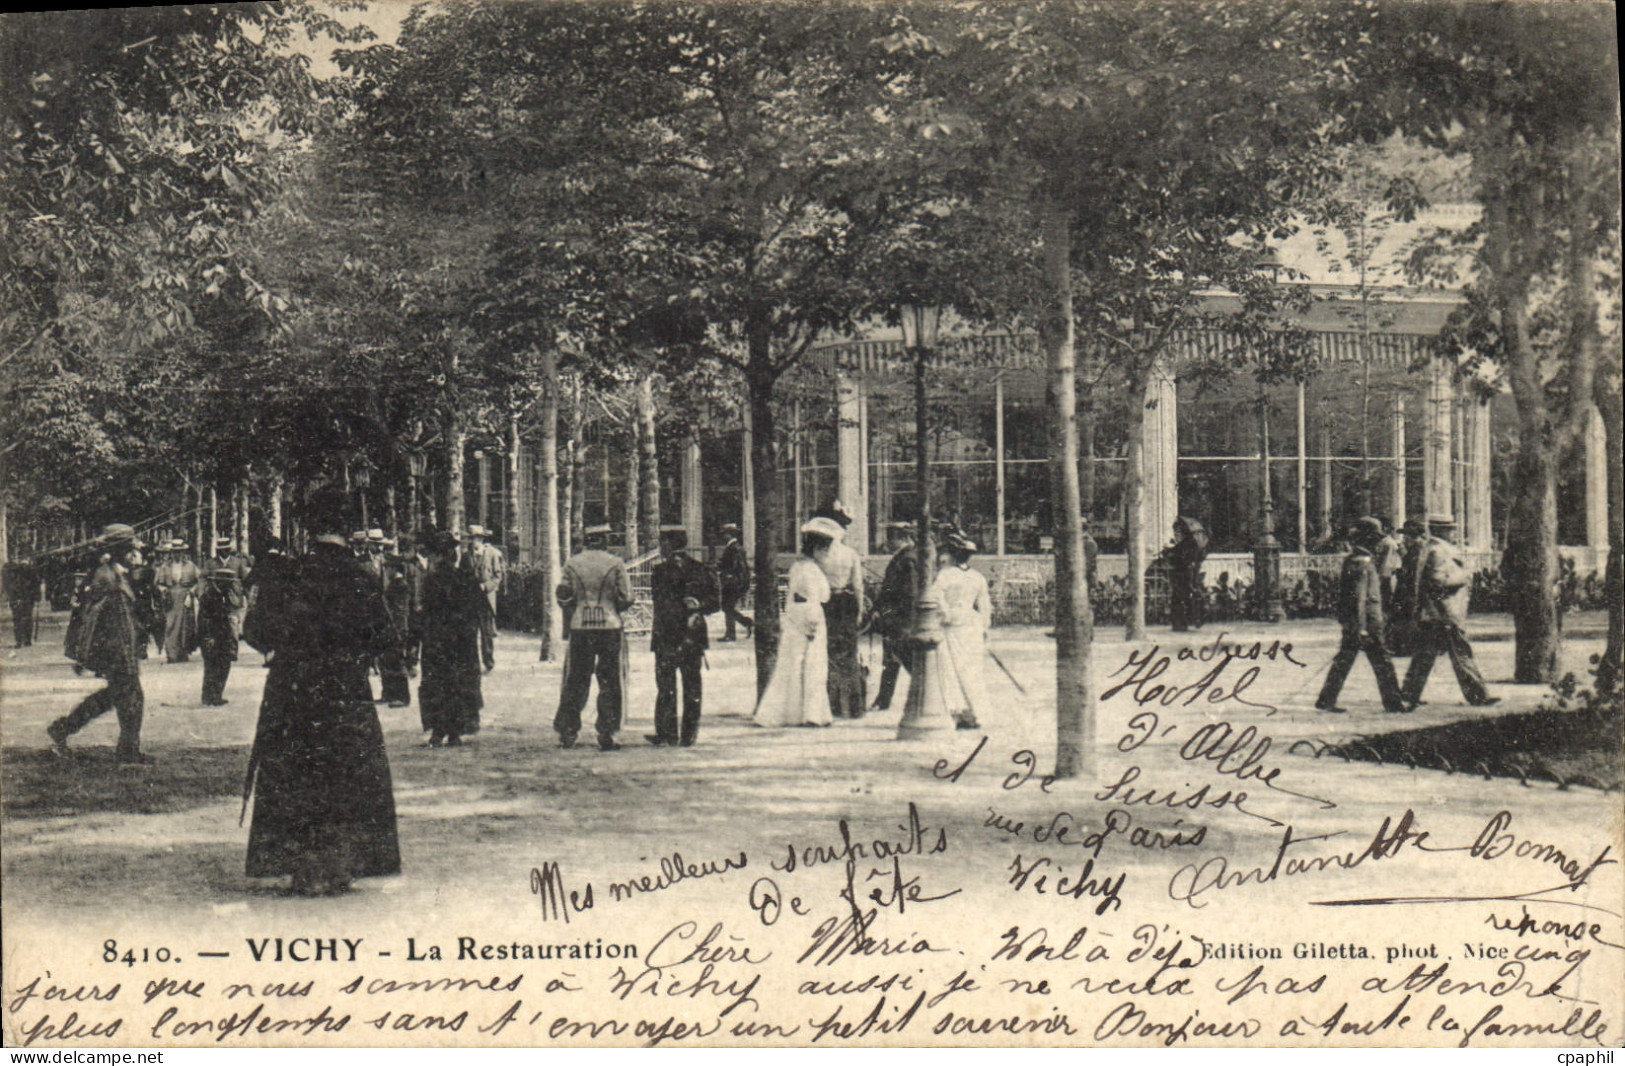 adresse
Hotel
d' Albe
et de Suisse
rue de Paris
Vichy
Mes meilleurs souhaits
de fête
Antoinette Bonnat
8410. — VICHY - La Restauration
Edition Giletta. phot. Nice
réponse
Chère Maria. Voilà déjà cinq
jours que nous sommes à Vichy aussi je ne veux pas attendre
plus longtemps sans t'envoyer un petit souvenir Bonjour à toute la famille
cpaphil